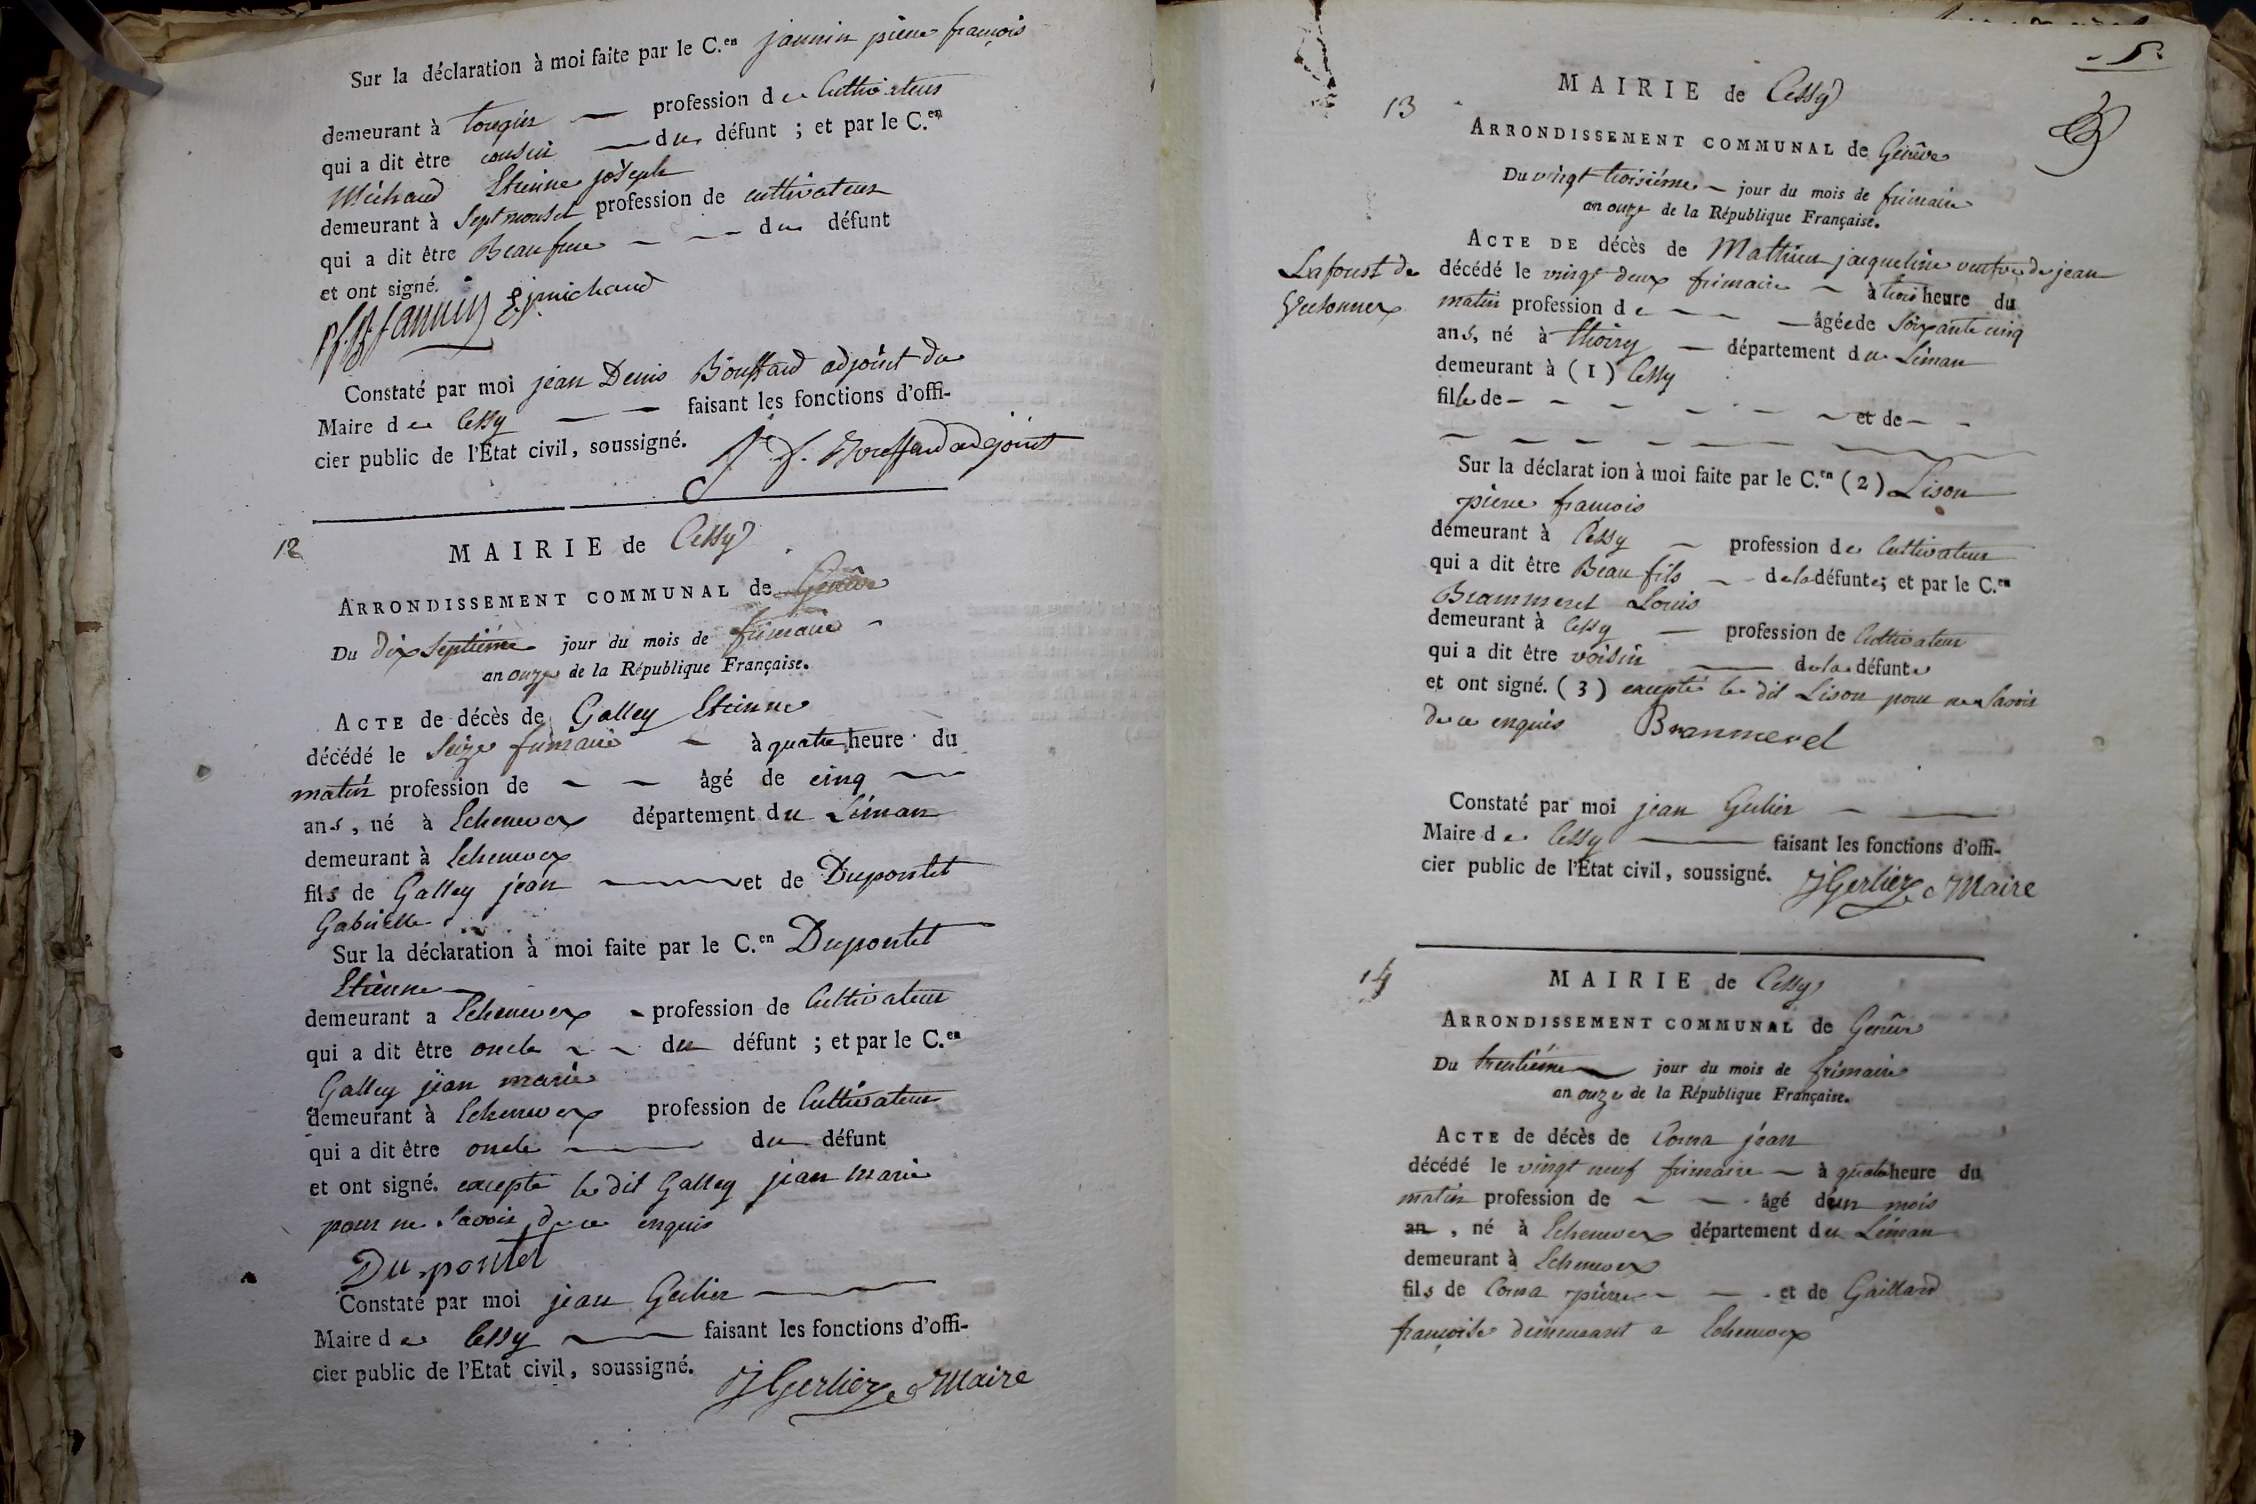 Sur la déclaration à moi faite par le C.en jannin pierre françois
demeurant à tougin — profession de Cultivateur
qui a dit ètre cousin — du défunt ; et par le C.en
Michaud Etienne joseph
demeurant à Septmoncel profession de cultivateur
qui a dit être Beaufrere — — du défunt
et ont signé.
jannin E j michaud
Constaté par moi jean Denis Bouffard adjoint du
Maire de Cessy — — faisant les fonctions d'offi-
cier public de l'État civil, soussigné. J. D. Bouffard adjoint
12
MAIRIE de Cessy
ARRONDISSEMENT COMMUNAL de Genêve
Du dix septième jour du mois de frimaire
an onze de la République Française.
ACTE de décès de Galley Etienne
décédé le Seize frimaire — à quatre heure du
matin profession de — — âgé de cinq —
ans, né à Echenevex département du Léman
demeurant à Echenevex
fils de Galley jean — et de Dupontet
Gabrielle
Sur la déclaration à moi faite par le C.en Dupontet
Etienne —
demeurant a Echenevex - profession de Cultivateur
qui a dit être oncle — — du défunt ; et par le C.en
Galley jean marie
demeurant à Echenevex profession de Cultivateur
qui a dit être oncle — du défunt
et ont signé. excepté le dit Galley jean marie
pour ne Savoir de ce enquis
Dupontet
Constaté par moi jean Gerlier —
Maire de Cessy — faisant les fonctions d'offi-
cier public de l'Etat civil, soussigné. J Gerlier Maire
5
13
MAIRIE de Cessy
ARRONDISSEMENT COMMUNAL de Genêve
Du vingt troisiéme — jour du mois de frimaire
an onze de la République Française.
ACTE DE décès de Mathieu jacqueline veuve de jean
Lafoust de
Vesonnex
décédé le vingt deux frimaire — à trois heure du
matin profession de — — — âgée de Soixante cinq
ans, né à thoiry — département du Léman
demeurant à (1) Cessy
fille de — — — — — — et de — —
Sur la déclarat ion à moi faite par le C.en (2) Lison
pierre francois
demeurant à Cessy — profession de Cultivateur
qui a dit être Beau fils — de la défunte ; et par le C.en
Brammerel Louis
demeurant à Cessy — profession de Cultivateur
qui a dit être voisin — de la défunte
et ont signé. (3) excepté le dit Lison pour ne Savoir
de ce enquis Branmerel
Constaté par moi jean Gerlier — —
Maire de Cessy — faisant les fonctions d'offi-
cier public de l'État civil, soussigné. J Gerlier Maire
14
MAIRIE de Cessy
ARRONDISSEMENT COMMUNAL de Genêve
Du trentiéme — jour du mois de frimaire
an onze de la République Française.
ACTE de décès de Coma jean
décédé le vingt neuf frimaire — à quatre heure du
matin profession de — — âgé d'un mois
an, né à Echenevex département du Léman
demeurant à Echenevex
fils de Coma pierre — — et de Gaillard
françoise demeurant a Echenevex